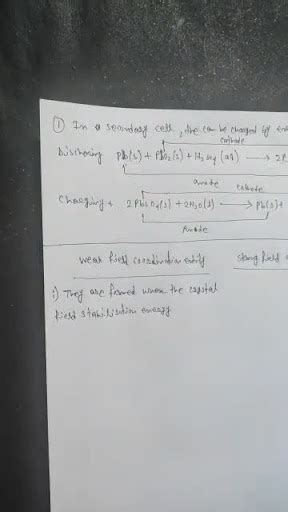 ① In a secondary cell, the can be charged by
cathode
Discharing Pb(s) + PbO2(s) + H2SO4 (aq) → 2P
anode
cathode
Charging + 2PbSO4(s) + 2H2O(l) → Pb(s) +
Anode
Weak field coordination entity strong field
i) They are formed when the crystal
field stabilisation energy